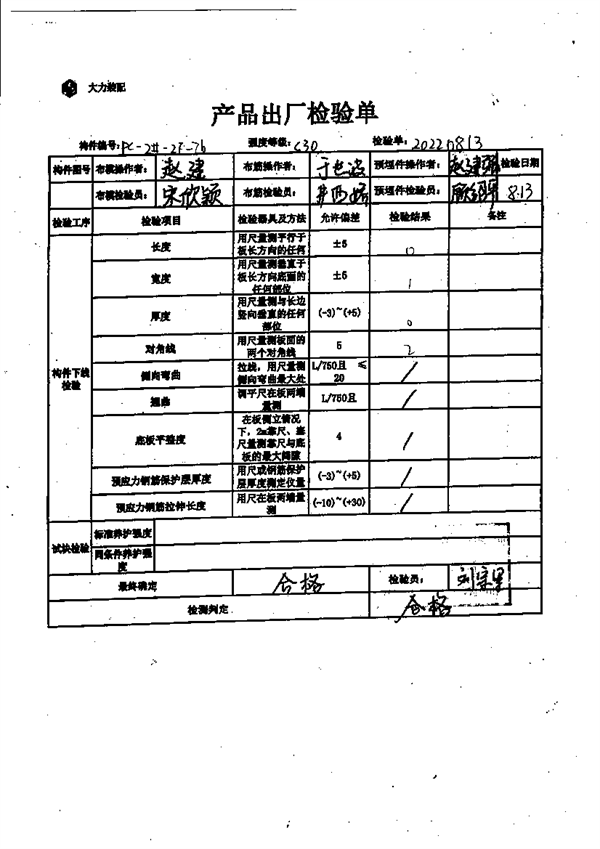 大力装配
产品出厂检验单
构件编号: PC-2#-2F-7b 强度等级: C30 检验单: 20220813
构件图号 布模操作者: 赵建 布筋操作者: 预埋件操作者: 赵建强 检验日期
布模检验员: 宋欣颖 布筋检验员: 预埋件检验员: 8.13
检验工序 检验项目 检验器具及方法 允许偏差 检验结果 备注
构件下线检验
长度 用尺量测平行于板长方向的任何 ±5 0
宽度 用尺量测垂直于板长方向底面的任何部位 ±5 1
厚度 用尺量测与长边竖向垂直的任何部位 (-3)~(+5) 0
对角线 用尺量测板面的两个对角线 5 2
侧向弯曲 拉线，用尺量测侧向弯曲最大处 L/750且 ≤20 /
翘曲 调平尺在板两端量测 L/750且 /
底板平整度 在板侧立情况下，2m靠尺、塞尺量测靠尺与底板的最大间隙 4 /
预应力钢筋保护层厚度 用尺或钢筋保护层厚度测定仪量 (-3)~(+5) /
预应力钢筋拉伸长度 用尺在板两端量测 (-10)~(+30) /
试块检验 标准养护强度
同条件养护强度
最终确定 合格 检验员:
检测判定 合格